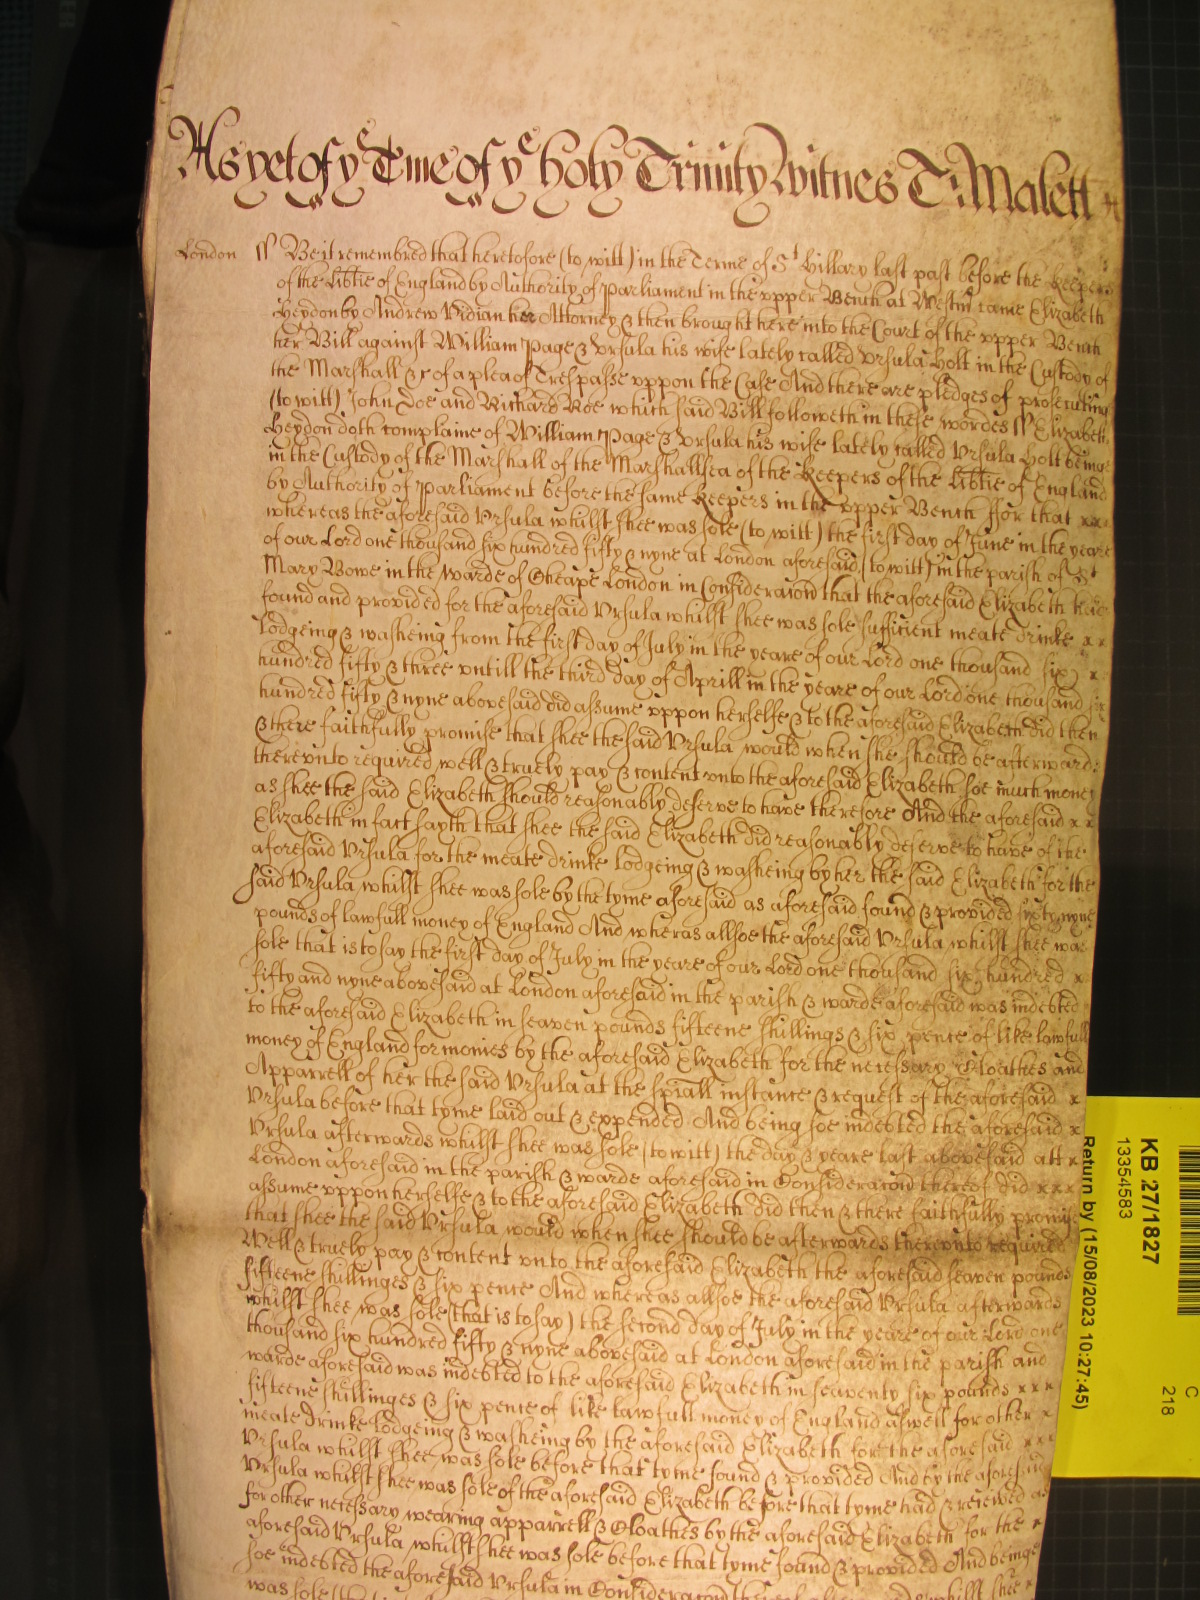 As yet of yᵉ Tme of yᵉ holy Trinity Witnes T: Malett
London ss Be it remembred that heretofore (to witt) in the Terme of Sᵗ Hillary last past before the Keepers
of the libtie of England by Authority of Parliament in the vpper Bench at Westm̄ came Elizabeth
Heydon by Andrew Vidian her Attorney & then brought here into the Court of the vpper Bench
her Bill against William Page & Vrsula his wife lately called Vrsula Holt in the Custody of
the Marshall &c of a plea of Trespasse vppon the Case And there are pledges of prosecuting
(to witt) John Doe and Richard Roe which said Bill followeth in these wordes ss Elizabeth
Heydon doth complaine of William Page & Vrsula his wife lately called Vrsula Holt being
in the Custody of the Marshall of the Marshallsea of the Keepers of the libtie of England
by Authority of Parliament before the same Keepers in the vpper Bench ffor that xx
whereas the aforesaid Vrsula whilst shee was sole (to witt) the first day of June in the yeare
of our Lord one thousand six hundred fifty & nyne at London aforesaid (to witt) in the parish of Sᵗ
Mary Bowe in the Warde of Cheape London in Consideracion that the aforesaid Elizabeth had
found and provided for the aforesaid Vrsula whilst shee was sole sufficient meate drinke x x
Lodgeing & washeing from the first day of July in the yeare of our Lord one thousand six x
hundred fifty & three vntill the third day of Aprill in the yeare of our Lord one thousand six
hundred fifty & nyne abovesaid did assume vppon herselfe & to the aforesaid Elizabeth did then
& there faithfully promise that shee the said Vrsula would when she should be afterwards
therevnto required well & truely pay & content vnto the aforesaid Elizabeth soe much money
as shee the said Elizabeth should reasonably deserve to have therefore And the aforesaid x x
Elizabeth in fact sayth that shee the said Elizabeth did reasonably deserve to have of the
aforesaid Vrsula for the meate drinke lodgeing & washeing by her the said Elizabeth for the
said Vrsula whilst shee was sole by the tyme aforesaid as aforesaid found & provided sixty nyne
pounds of lawfull money of England And wheras allsoe the aforesaid Vrsula whilst shee was
sole that is to say the first day of July in the yeare of our Lord one thousand six hundred x
fifty and nyne abovesaid at London aforesaid in the parish & warde aforesaid was indebted
to the aforesaid Elizabeth in seaven pounds fifteene shillings & six pence of like lawfull
money of England for monies by the aforesaid Elizabeth for the necessary Cloathes and
Apparrell of her the said Vrsula at the spiall instance & request of the aforesaid x
Vrsula before that tyme laid out & expended And being soe indebted the aforesaid x
Vrsula afterwards whilst shee was sole (to witt) the day & yeare last abovesaid att x
London aforesaid in the parish & warde aforesaid in Consideracion thereof did x x x
assume vppon herselfe & to the aforesaid Elizabeth did then & there faithfully promise
that shee the said Vrsula would when shee should be afterwards therevnto required
Well & truely pay & content vnto the aforesaid Elizabeth the aforesaid seaven pounds
fifteene shillinges & six pence And whereas allsoe the aforesaid Vrsula afterwards
whilst shee was sole (that is to say) the second day of July in the yeare of our Lord one
thousand six hundred fifty & nyne abovesaid at London aforesaid in the parish and
warde aforesaid was indebted to the aforesaid Elizabeth in seaventy six pounds x x x
fifteene shillinges & six pence of like lawfull money of England aswell for other x
meate drinke Lodgeing & washeing by the aforesaid Elizabeth for the aforesaid x x x
Vrsula whilst shee was sole before that tyme found & provided And by the aforesaid
Vrsula whilst shee was sole of the aforesaid Elizabeth before that tyme had & received as
for other necessary wearing apparrell & Cloathes by the aforesaid Elizabeth for the x
aforesaid Vrsula whilst shee was sole before that tyme found & provided And beinge
soe indebted the aforesaid Vrsula in Consideracion thereof afterwards whilst shee x
was sole
KB 27/1827
13354583
Return by (15/08/2023 10:27:45)
C
218